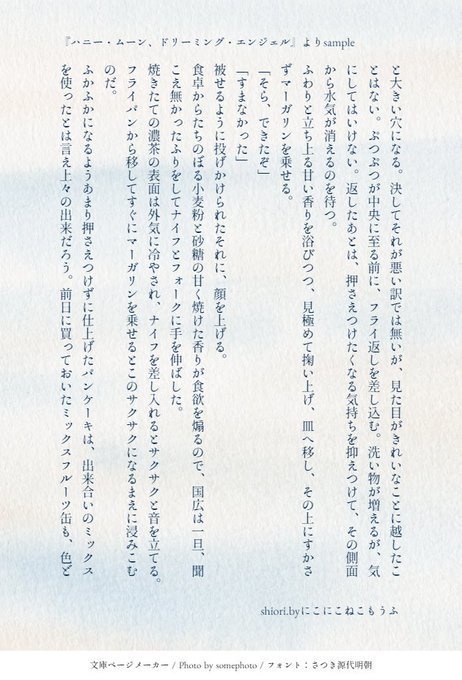 『ハニー・ムーン、ドリーミング・エンジェル』よりsample
と大きい穴になる。決してそれが悪い訳では無いが、見た目がきれいなことに越したこ
とはない。ぷつぷつが中央に至る前に、フライ返しを差し込む。洗い物が増えるが、気
にしてはいけない。返したあとは、押さえつけたくなる気持ちを抑えつけて、その側面
から水気が消えるのを待つ。
ふわりと立ち上る甘い香りを浴びつつ、見極めて掬い上げ、皿へ移し、その上にすかさ
ずマーガリンを乗せる。
「そら、できたぞ」
「すまなかった」
被せるように投げかけられたそれに、顔を上げる。
食卓からたちのぼる小麦粉と砂糖の甘く焼けた香りが食欲を煽るので、国広は一旦、聞
こえ無かったふりをしてナイフとフォークに手を伸ばした。
焼きたての濃茶の表面は外気に冷やされ、ナイフを差し入れるとサクサクと音を立てる。
フライパンから移してすぐにマーガリンを乗せるとこのサクサクになるまえに浸みこむ
のだ。
ふかふかになるようあまり押さえつけずに仕上げたパンケーキは、出来合いのミックス
を使ったとは言え上々の出来だろう。前日に買っておいたミックスフルーツ缶も、色ど
shiori.byにこにこねこもうふ
文庫ページメーカー / Photo by somephoto / フォント：さつき源代明朝